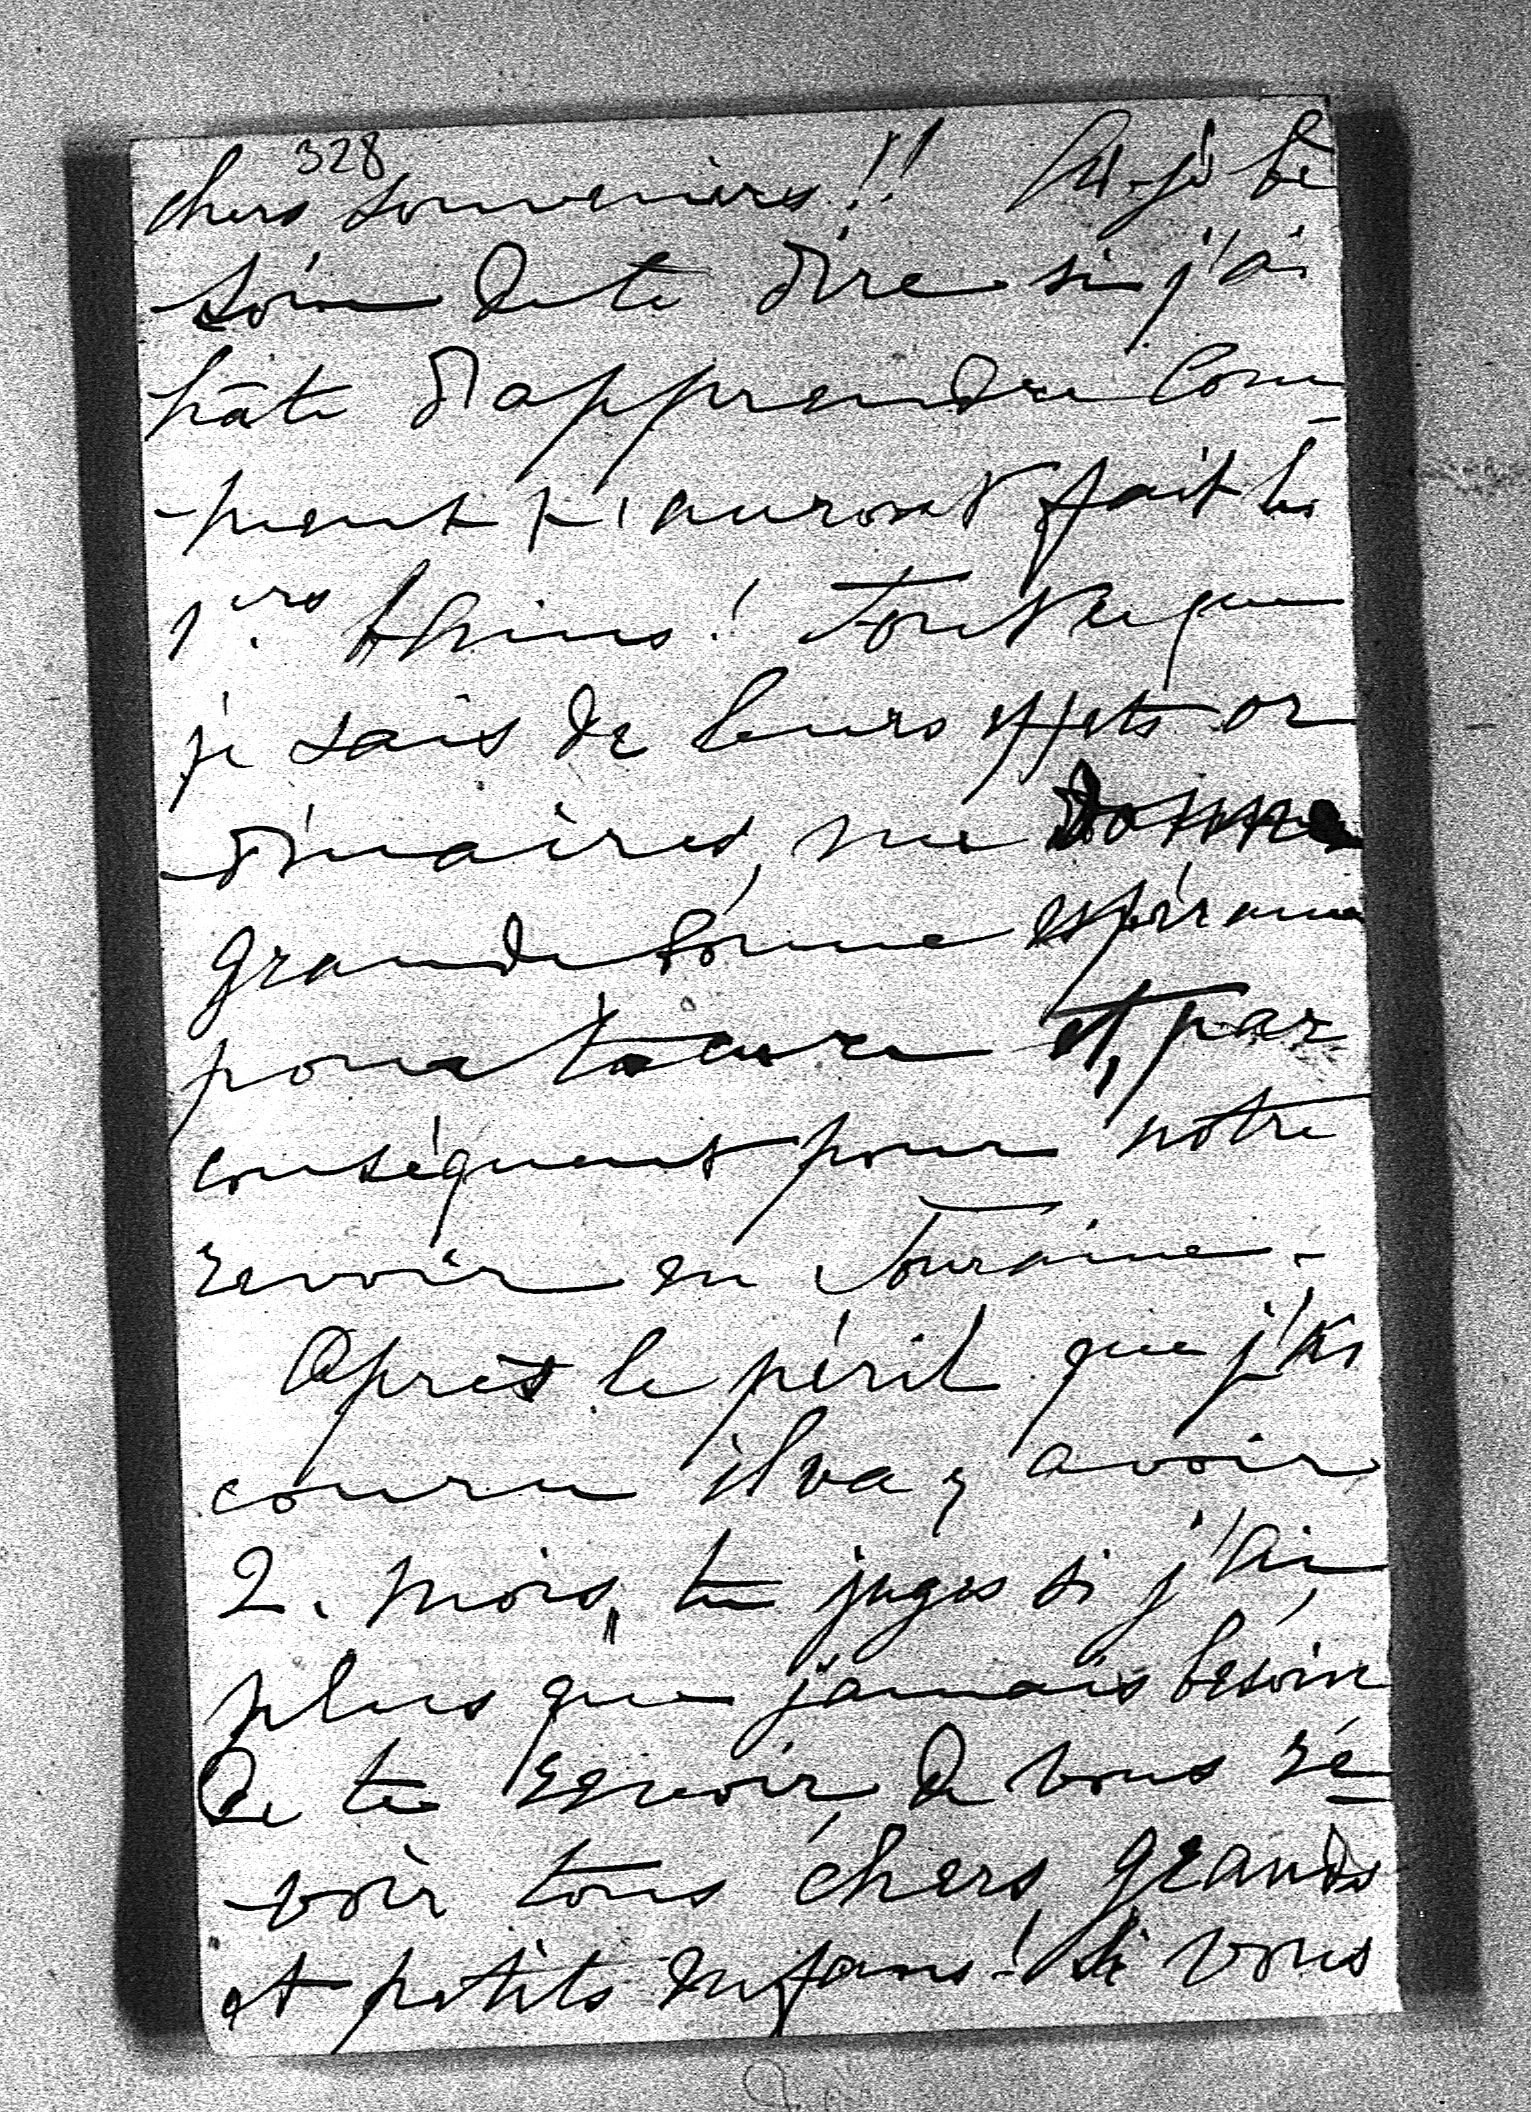 328
chers souvenirs!! Ai-je be
soin de te dire si j'ai
hâte d'apprendre com-
-ment t'auront fait les
1ers bains! Tout ce que
je sais de leurs effets or
dinaires, me donne
grande bonne espérance
pour ta cure et, par
conséquent pour notre
revoir en Touraine.-
Après le péril que j'ai
couru il va y avoir
2. mois, tu juges si j'ai
plus que jamais besoin
de te revoir, de vous re-
-voir tous chers grands
et petits enfans! Si vous